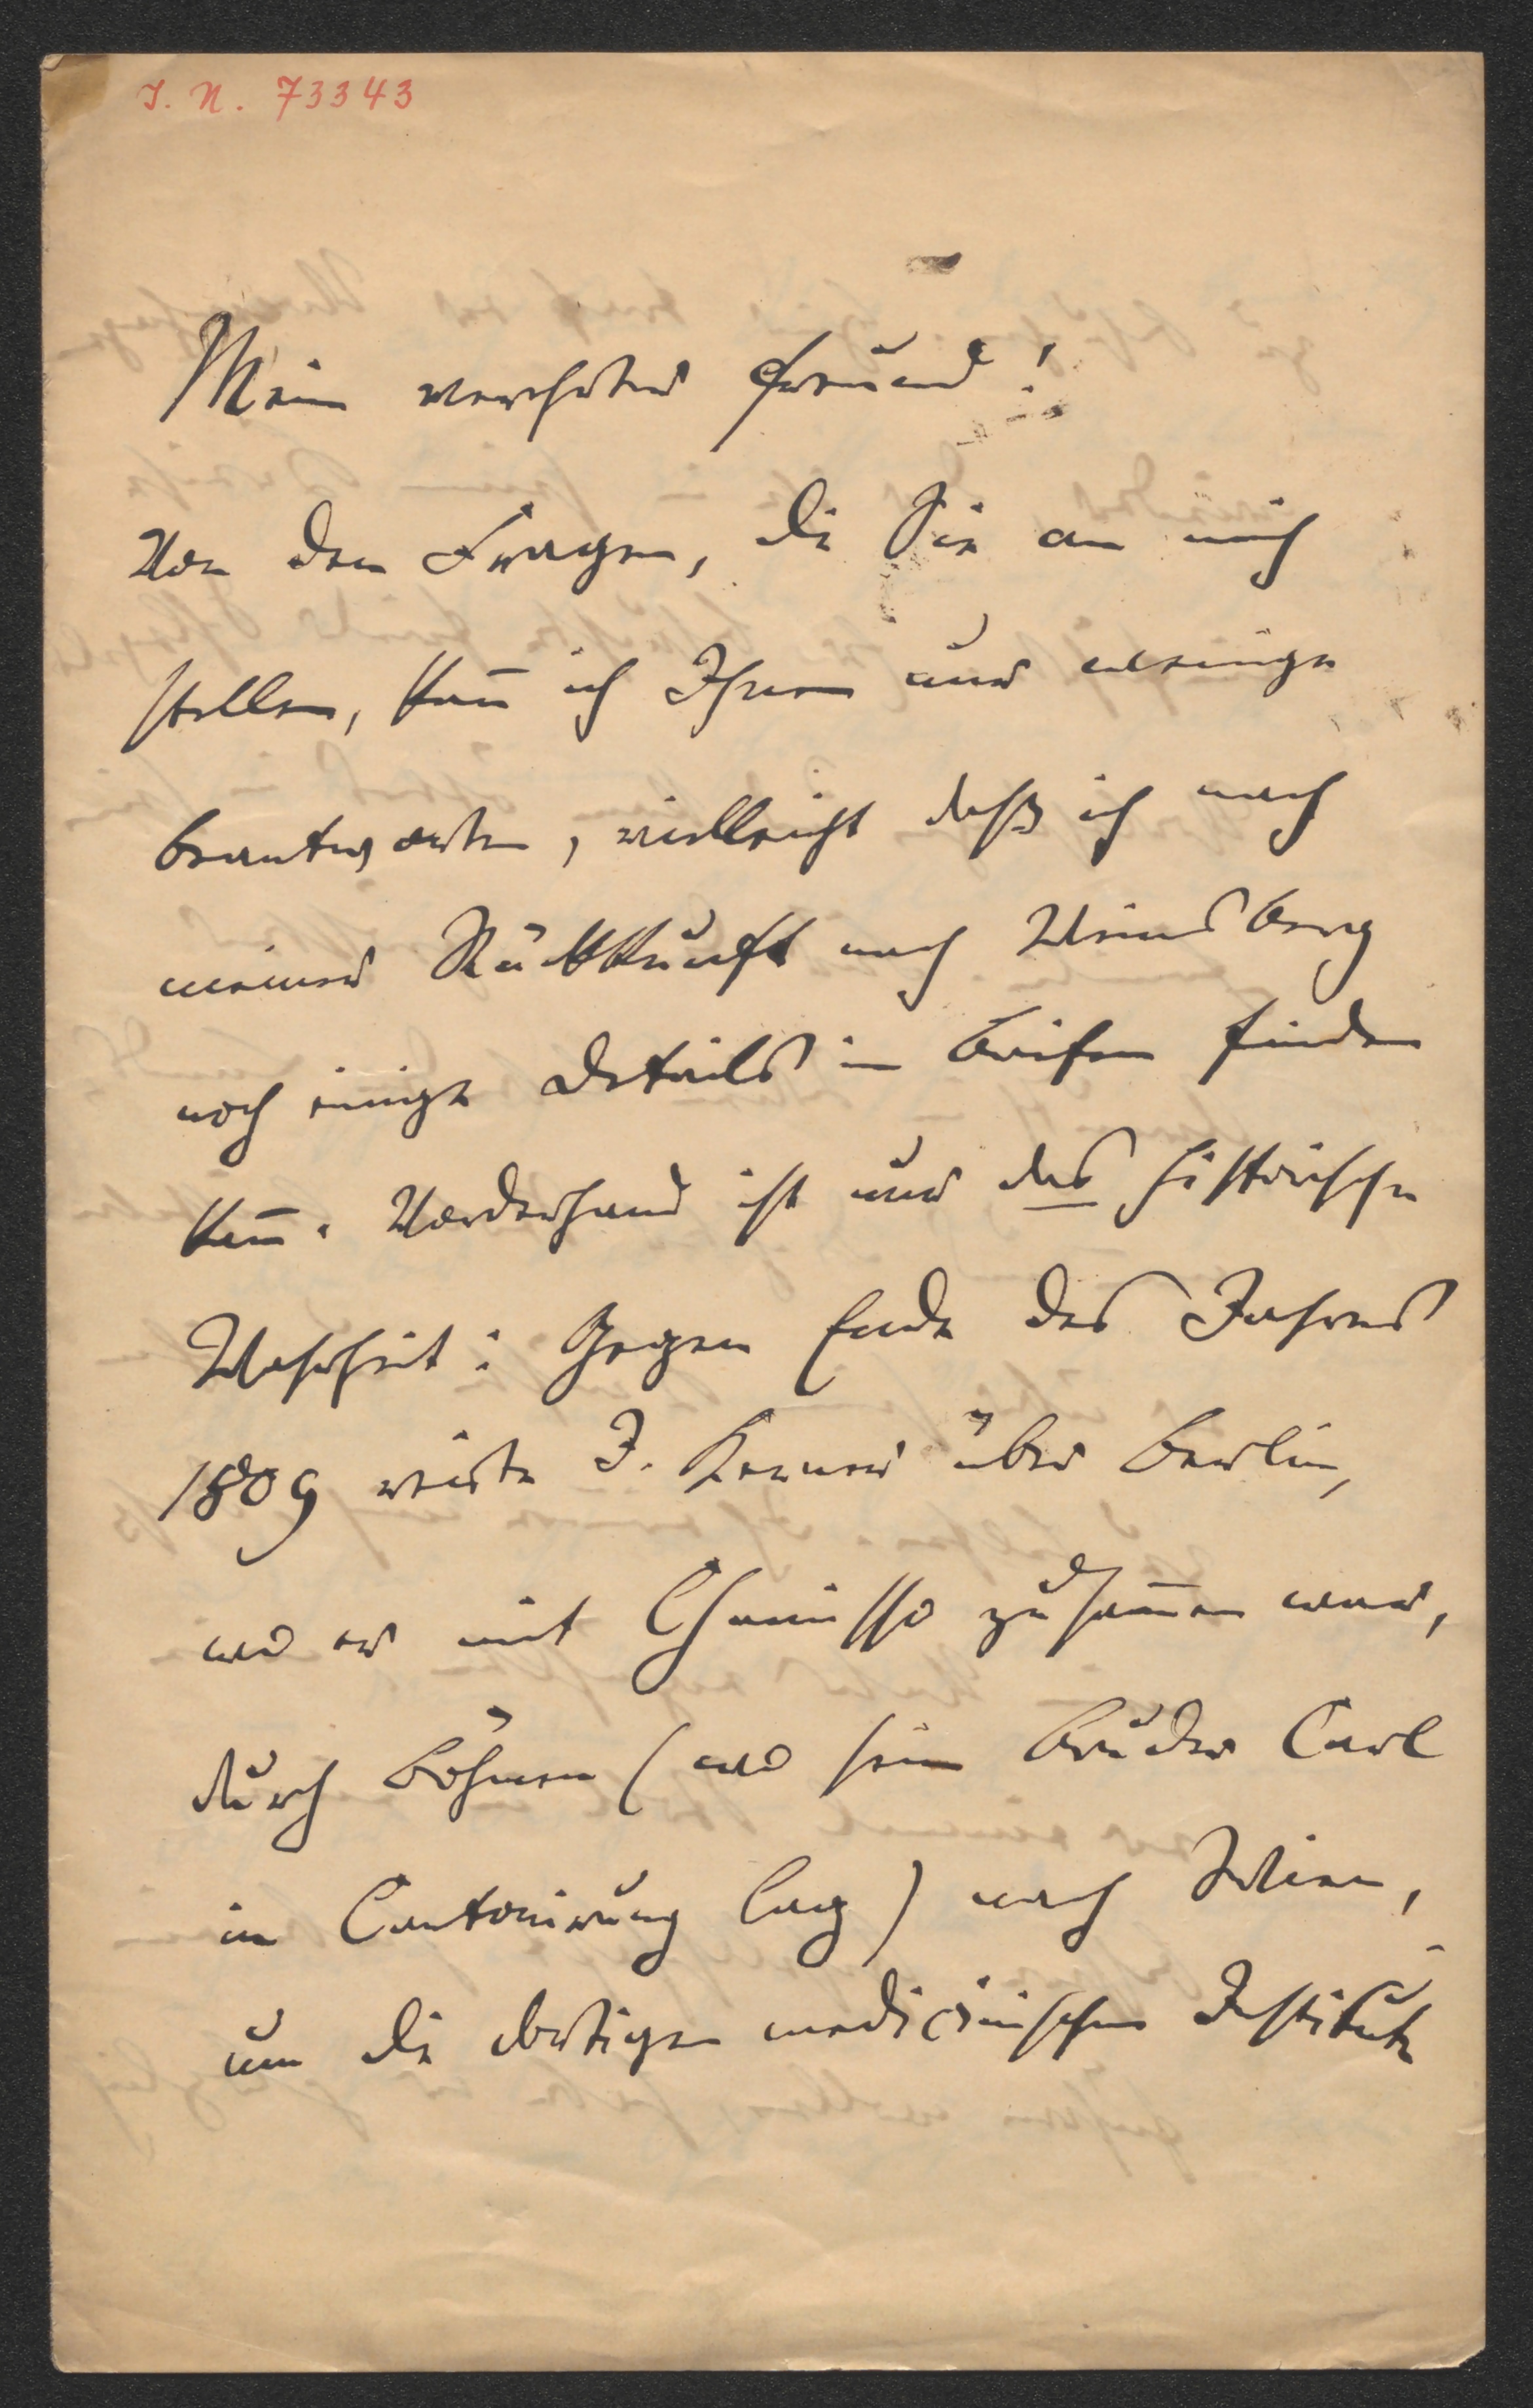 I. N. 73343
Mein verehrter Freund!
Von den Fragen, die Sie an mich
stellen, kan̄ ich Ihnen nur wenige
beantworten, vielleicht daß ich nach
meiner Rückkunft nach Weinsberg
noch einige Details in Briefen finden
kan̄. Vorderhand ist nur das historische
Wahrheit: Gegen Ende des Jahres
1809 reiste J. Kerner über Berlin,
wo er mit Chamisso zusam̄en war,
durch Böhmen (wo sein Bruder Carl
in Cantonirung lag) nach Wien,
um die dortigen medicinischen Institute